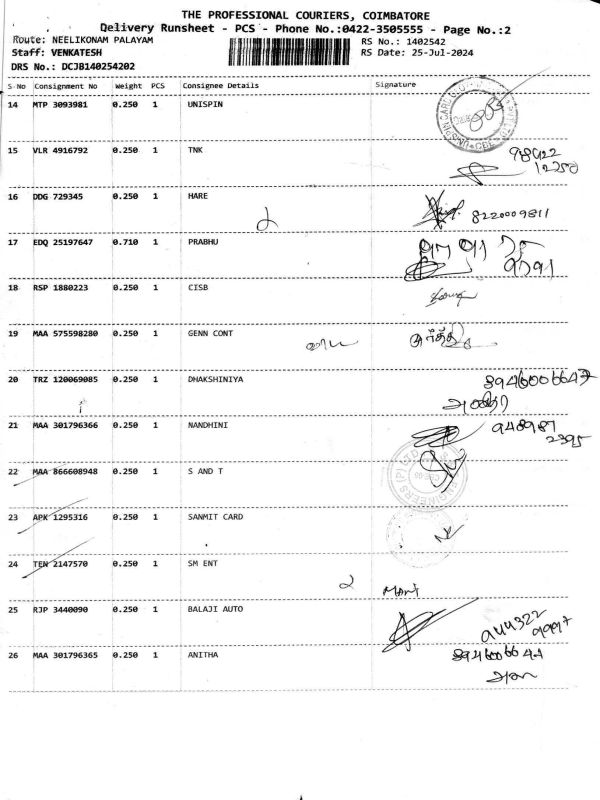 THE PROFESSIONAL COURIERS, COIMBATORE
Delivery Runsheet - PCS - Phone No.:0422-3505555 - Page No.:2
Route: NEELIKONAM PALAYAM
RS No.: 1402542
Staff: VENKATESH
RS Date: 25-Jul-2024
DRS No.: DCJB140254202
S.No Consignment No Weight PCS Consignee Details Signature
14 MTP 3093981 0.250 1 UNISPIN
15 VLR 4916792 0.250 1 TNK
16 DDG 729345 0.250 1 HARE
8220009811
17 EDQ 25197647 0.710 1 PRABHU
18 RSP 1880223 0.250 1 CISB
19 MAA 575598280 0.250 1 GENN CONT
20 TRZ 120069085 0.250 1 DHAKSHINIYA
21 MAA 301796366 0.250 1 NANDHINI
948987
2395
22 MAA 866608948 0.250 1 S AND T
23 APK 1295316 0.250 1 SANMIT CARD
24 TEN 2147570 0.250 1 SM ENT
Mani
25 RJP 3440090 0.250 1 BALAJI AUTO
26 MAA 301796365 0.250 1 ANITHA